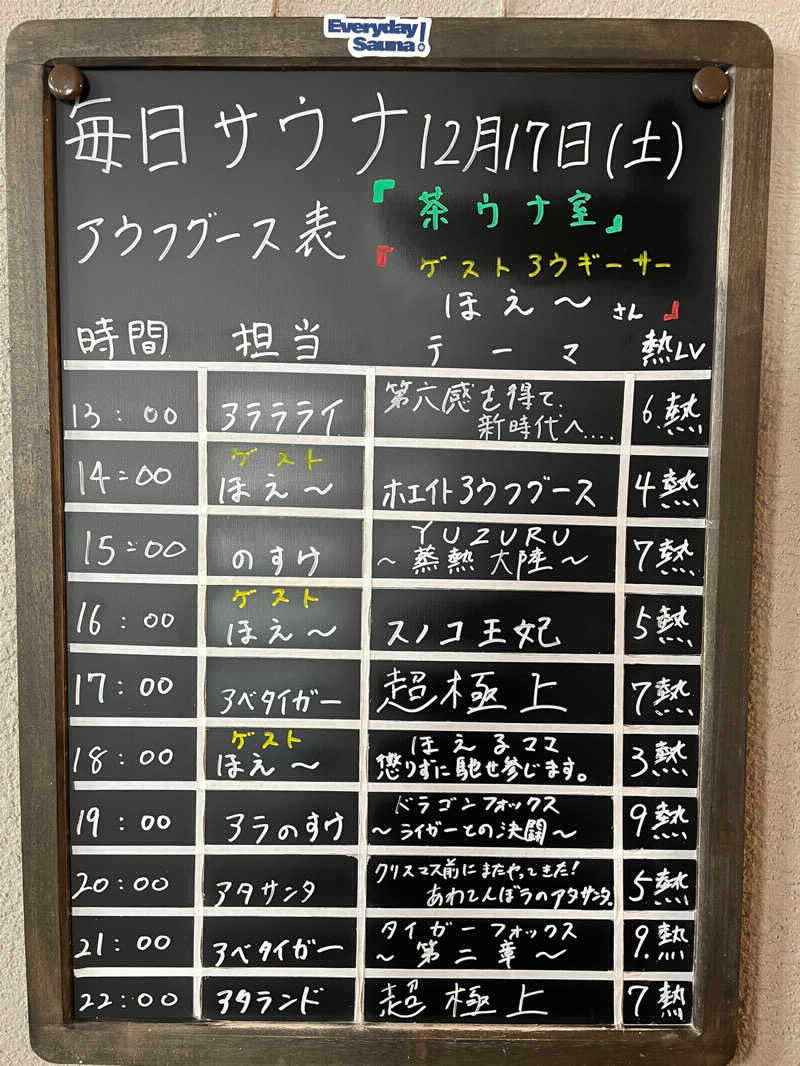 Everyday
Sauna!
毎日サウナ 12月17日(土)
アウフグース表
『茶ウナ室』
『ゲストヨウギーサー
ほえ〜さん』
時間 担当 テーマ 熱LV
13:00 アラララライ 第六感を得て、新時代へ.... 6熱
14:00 ゲスト ほえ〜 ホエイトヨウフグース 4熱
15:00 のすけ YUZURU 〜蒸熱大陸〜 7熱
16:00 ゲスト ほえ〜 スノコ王妃 5熱
17:00 アベタイガー 超極上 7熱
18:00 ゲスト ほえ〜 ほえるママ 懲りずに馳せ参じます。 3熱
19:00 アラのすけ ドラゴンフォックス 〜ライガーとの決闘〜 9熱
20:00 アタサンタ クリスマス前にまたやってきた! あわてんぼうのアタサンタ。 5熱
21:00 アベタイガー タイガーフォックス 〜第二章〜 9熱
22:00 アタランド 超極上 7熱